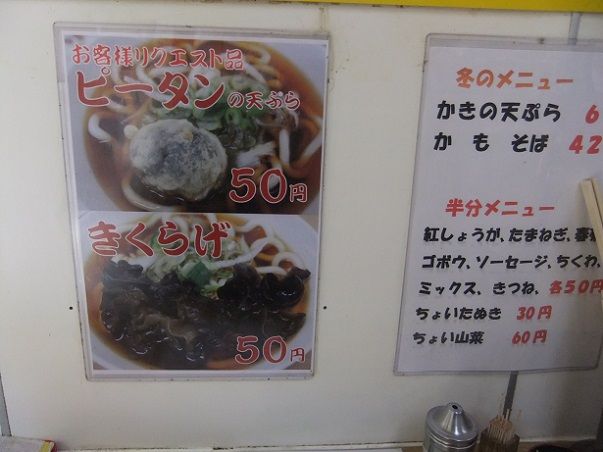 お客様リクエスト品
ピータンの天ぷら
50円
きくらげ
50円
冬のメニュー
かきの天ぷら 6
かも そば 42
半分メニュー
紅しょうが、たまねぎ、春
ゴボウ、ソーセージ、ちくわ、
ミックス、きつね、各50円
ちょいたぬき 30円
ちょい山菜 60円